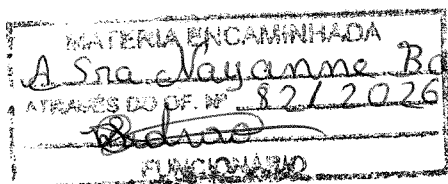 MATERIA ENCAMINHADA
A Sra Nayanne Ba
ATRAVÉS DO OF. Nº 82/2026
FUNCIONÁRIO